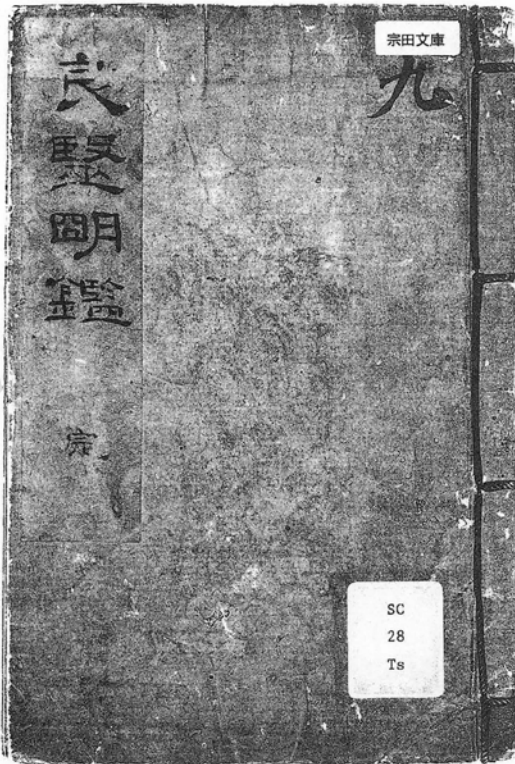 宗田文庫
九
良毉朙鑑
宗
SC
28
Ts